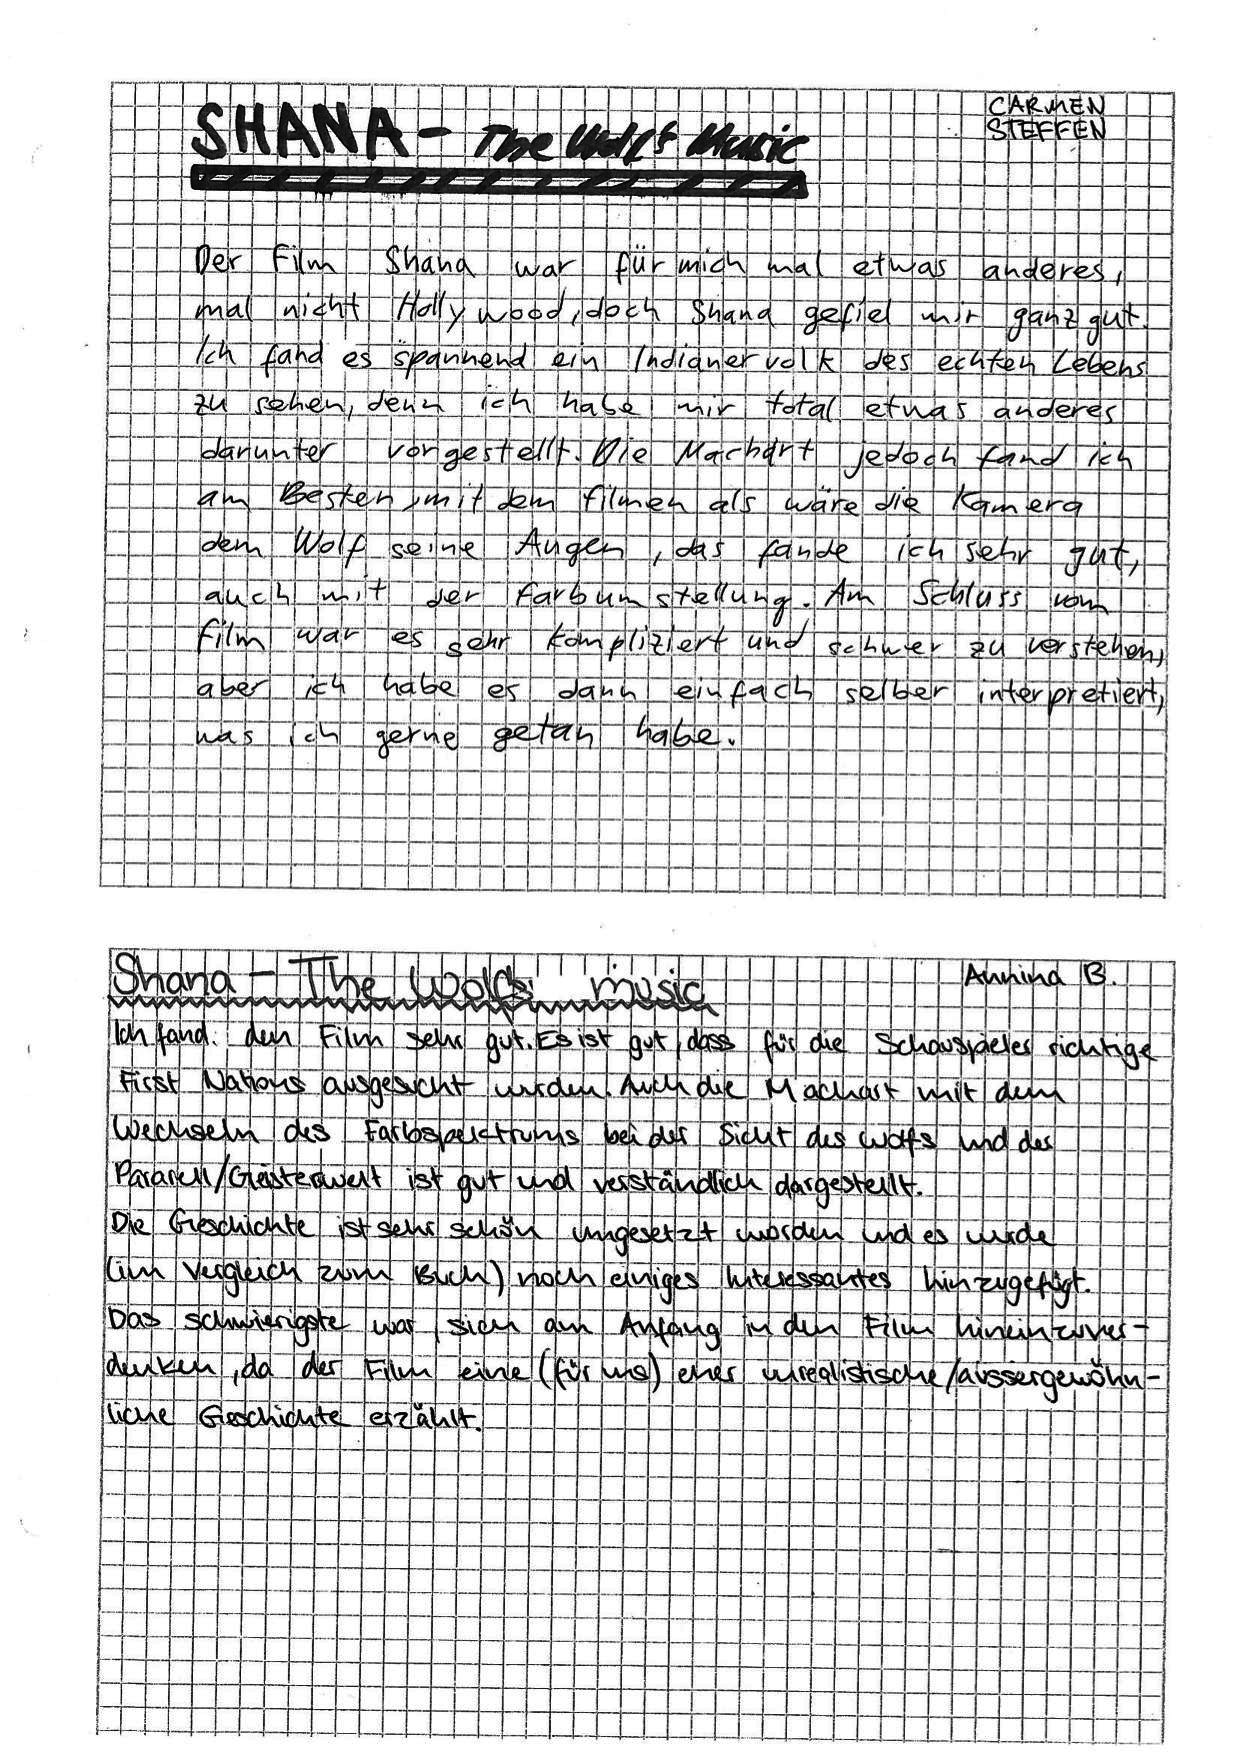 CARMEN
STEFFEN
SHANA - The Wolf's Music
Der Film Shana war für mich mal etwas anderes,
mal nicht Hollywood, doch Shana gefiel mir ganz gut.
Ich fand es spannend ein Indianervolk des echten Lebens
zu sehen, denn ich habe mir total etwas anderes
darunter vorgestellt. Die Machart jedoch fand ich
am Besten, mit dem filmen als wäre die Kamera
dem Wolf seine Augen, das fande ich sehr gut,
auch mit der Farbumstellung. Am Schluss vom
Film war es sehr kompliziert und schwer zu verstehen,
aber ich habe es dann einfach selber interpretiert,
was ich gerne getan habe.
Shana - The Wolfs music
Annina B.
Ich fand den Film sehr gut. Es ist gut, dass für die Schauspieler richtige
First Nations ausgesucht wurden. Auch die Machart mit dem
Wechseln des Farbspektrums bei der Sicht des Wolfs und der
Pararell/Geisterwelt ist gut und verständlich dargestellt.
Die Geschichte ist sehr schön umgesetzt worden und es wurde
(im Vergleich zum Buch) noch einiges Interessantes hinzugefügt.
Das schwierigste war, sich am Anfang in den Film hineinzuver-
denken, da der Film eine (für uns) eher unrealistische/aussergewöhn-
liche Geschichte erzählt.